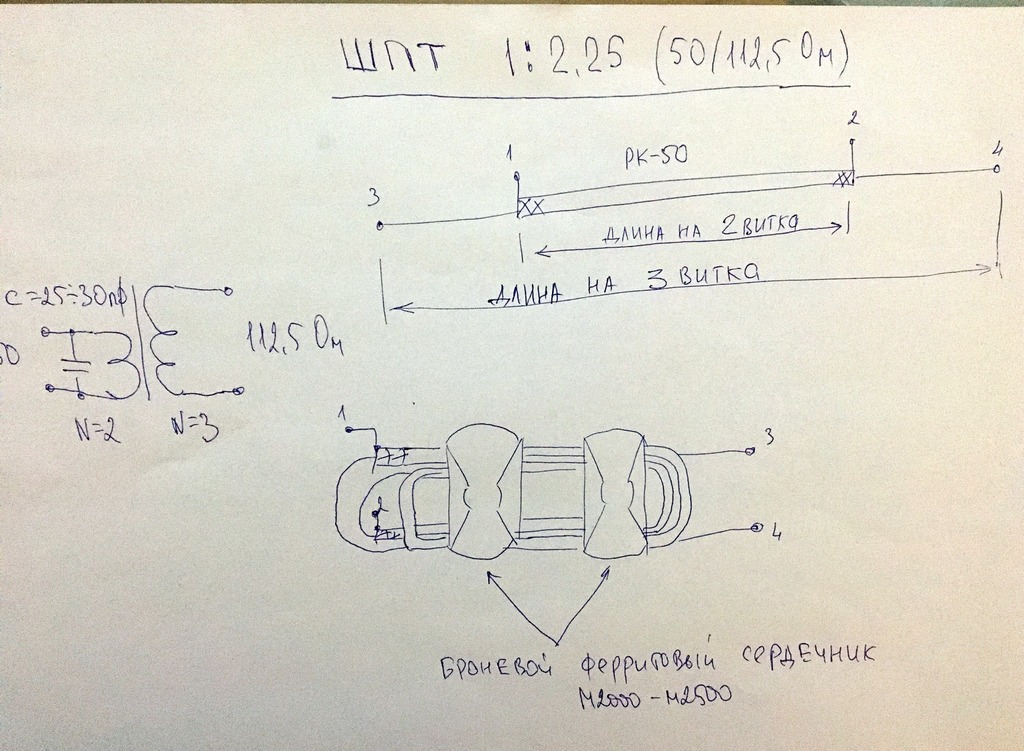 ШПТ 1:2,25 (50/112,5 Ом)
2
1
РК-50
4
3
ДЛИНА НА 2 ВИТКА
ДЛИНА НА 3 ВИТКА
C=25÷30пф
112,5 Ом
N=2
N=3
1
3
2
4
БРОНЕВОЙ ФЕРРИТОВЫЙ СЕРДЕЧНИК
М2000-М2500